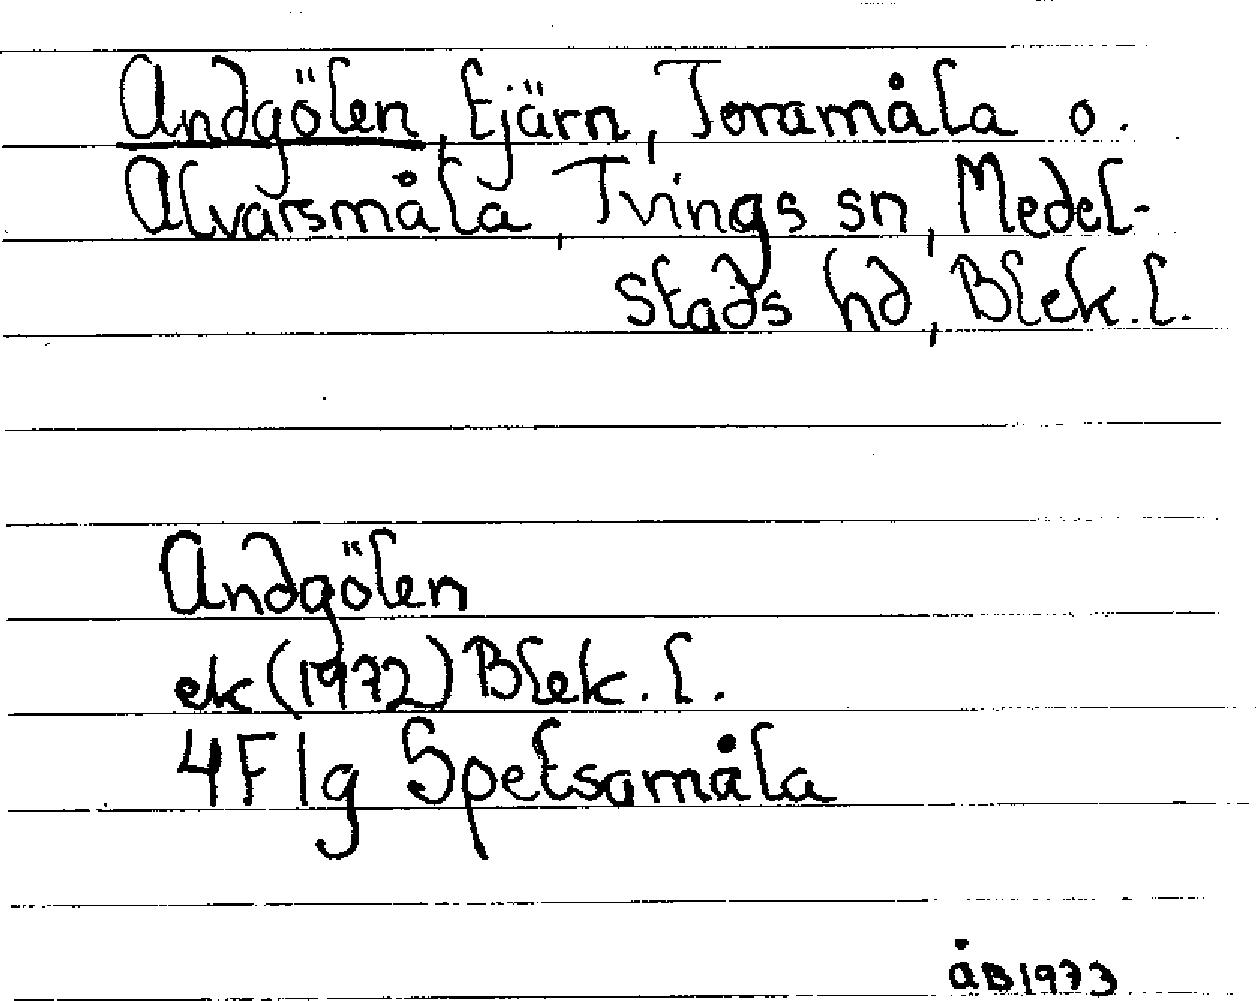 Andgölen, tjärn, Toramåla o.
Alvarsmåla, Tvings sn, Medel-
stads hd, Blek. l.
Andgölen
ek (1972) Blek. l.
4F1g Spetsamåla
åB1973